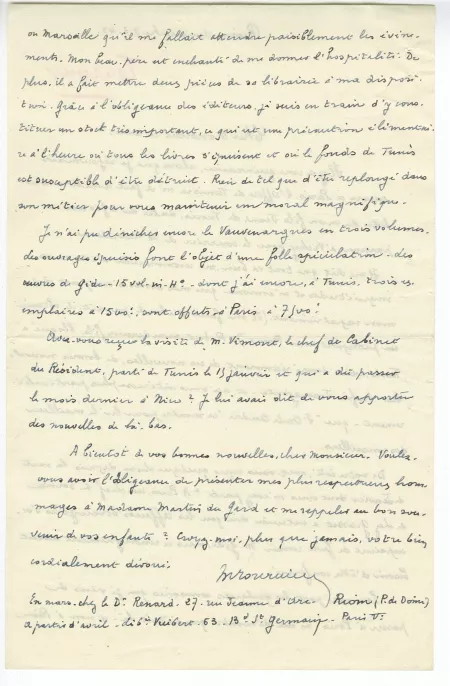 ou Marseille qu'il me fallait attendre paisiblement les événe-
ments. Mon beau-père est enchanté de me donner l'hospitalité. De
plus, il a fait mettre deux pièces de sa librairie à ma disposi-
tion. Grâce à l'obligeance des éditeurs, je suis en train d'y cons-
tituer un stock très important, ce qui est une précaution élémentai-
re à l'heure où tous les livres s'épuisent et où le fonds de Tunis
est susceptible d'être détruit. Rien de tel que d'être replongé dans
son métier pour vous maintenir un moral magnifique.
Je n'ai pu dénicher encore le Vauvenargues en trois volumes.
Les ouvrages épuisés font l'objet d'une folle spéculation. Les
œuvres de Gide - 15 vol. in-4° - dont j'ai encore, à Tunis, trois ex-
emplaires à 1500f, sont offerts, à Paris à 7500f
Avez-vous reçu la visite de M. Vimont, le chef de Cabinet
du Résident, parti de Tunis le 15 janvier et qui a dû passer
le mois dernier à Nice ? Je lui avais dit de vous apporter
des nouvelles de là-bas.
A bientôt de vos bonnes nouvelles, cher Monsieur. Voulez-
vous avoir l'obligeance de présenter mes plus respectueux hom-
mages à Madame Martin du Gard et me rappeler au bon sou-
venir de vos enfants ? Croyez-moi, plus que jamais, votre bien
cordialement dévoué.
En mars, chez le Dr Renard. 27, rue Jeanne d'Arc. Riom (P. de Dôme)
à partir d'avril - Libie Vuibert - 63. Bd St Germain. Paris Ve